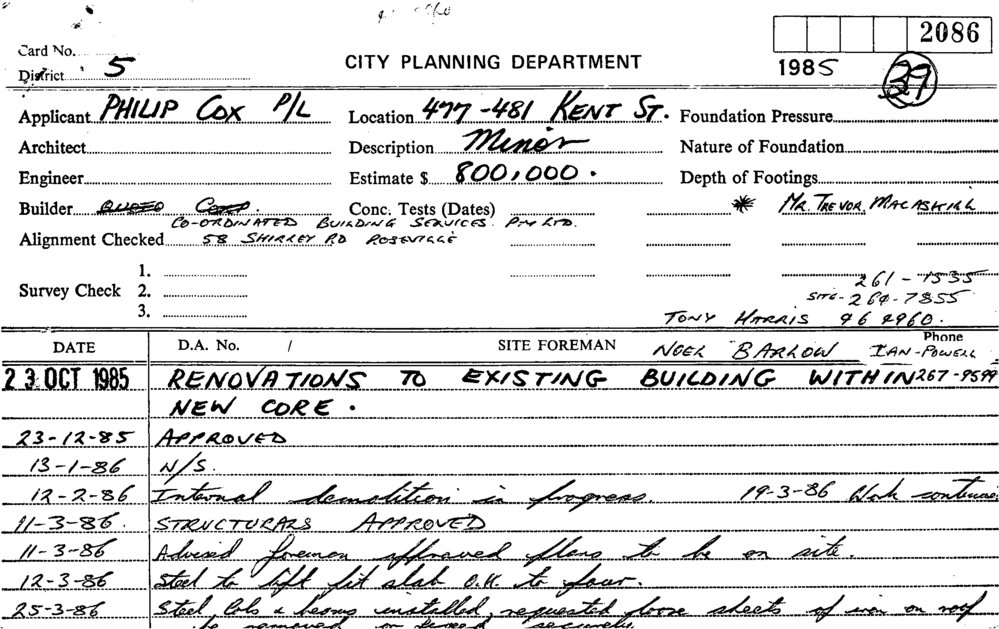 2086
Card No.
District 5
CITY PLANNING DEPARTMENT
1985
39
Applicant PHILIP COX P/L Location 477-481 KENT ST. Foundation Pressure
Architect Description Minor Nature of Foundation
Engineer Estimate $ 800,000. Depth of Footings
Builder Conc. Tests (Dates) * MR. TREVOR MACASKILL
CO-ORDINATED BUILDING SERVICES PTY LTD.
Alignment Checked 58 SHIRLEY RD ROSEVILLE
1.
261-1535
Survey Check 2.
SITE-264-7855
3.
TONY HARRIS 46 4960.
DATE D.A. No. / SITE FOREMAN NOEL BARLOW Phone
IAN POWELL
23 OCT 1985 RENOVATIONS TO EXISTING BUILDING WITHIN 267-9599
NEW CORE.
23-12-85 APPROVED
13-1-86 N/S.
12-2-86 Internal demolition in progress. 19-3-86 Work continues
11-3-86. STRUCTURALS APPROVED
11-3-86 Advised foreman approved plans to be on site.
12-3-86 Steel to lift pit slab O.K. to pour.
25-3-86 Steel cols & beams installed, requested loose sheets of iron on roof
be removed or fixed securely.